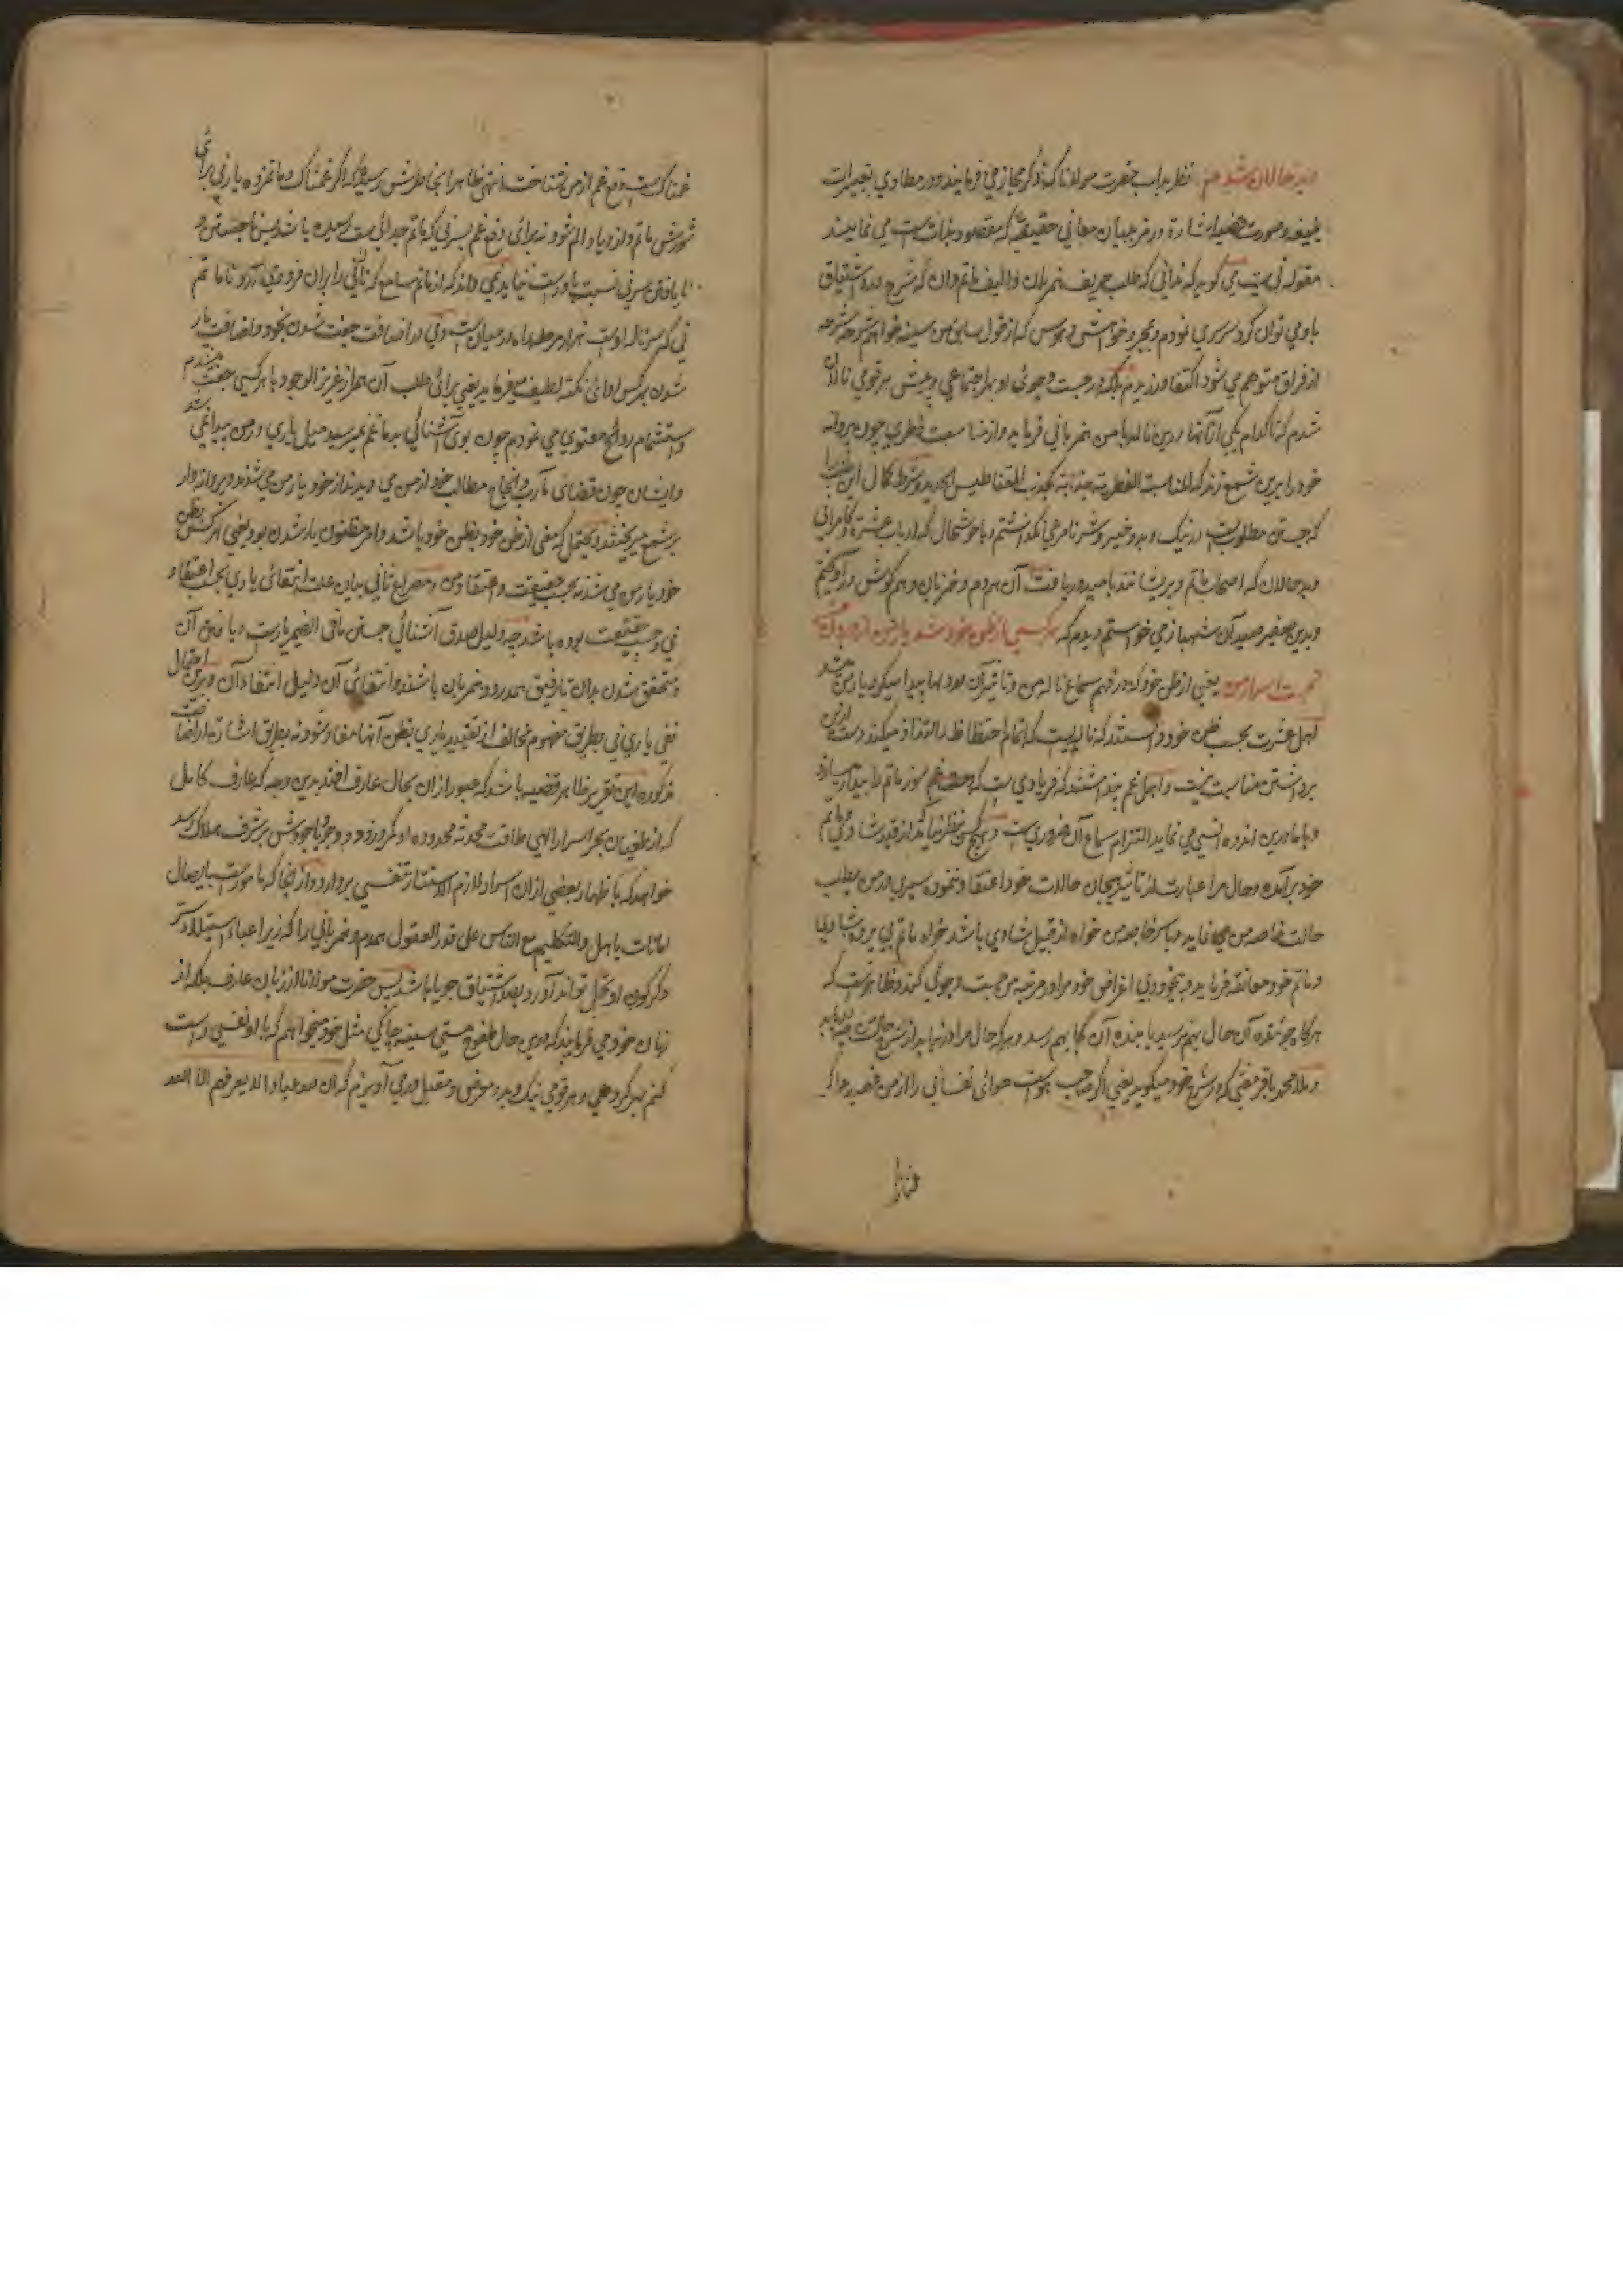 بدحالان شدم نظر بداب حضرت مولانا که ذکر مجاز می فرمایند و در مطاوی تعبیرات
لطیفه و صورت قضیه اشاره و رمز ببیان معانی حقیقیه که مقصود بذات است می نمایند
مقوله نی است می گوید که ندانی که طلب حریف همزبان و الیف ماتم دان که شرح درد اشتیاق
با وی توان کرد سرسری نمودم و بمجرد خواهش و هوس که از قول سابق من سینه خواهم شرحه شرحه
از فراق متوهم می شود اکتفا ورزیدم بلکه در جست و جوی او بهر اجتماعی و پیش هر قومی نالان
شدم که تا کدام یکی از آنها درین ناله با من همزبانی فرماید و از مناسبت فطری چون پروانه
خود را برین شمع زند که المناسبة الفطریة جذابة کجذب المقناطیس الحدید و شرط کمال این طلب را
که جستن مطلوب است در نیک و بد و خیر و شر نامرعی نگذاشتم و با خوشحالان که ارباب عشرت و کامرانی
و بدحالان که اصحاب ماتم و پریشانند بامید دریافت آن همدم و همزبان و هم گوش درآویختم
و بدین صفیر صید آن شهباز می خواستم و دیدم که هر کسی از ظن خود شد یار من از درون
نجست اسرار من یعنی از ظن خود که در فهم سماع ناله من و تاثیر آن در دلها پیدا میکرد یار من شد
اهل عشرت بحسب ظن خود دانستند که ناله ایست که اتمام احتظاظ و التذاذ میکند دست ازین
برداشتن مناسب نیست و اهل غم پنداشتند که فریادی است که وصف غم سوز ماتم را بیدار سازد
و با ما درین اندوه انیسی می نماید التزام سماع آن ضروری است و هیچ کس نظر نیامد که از قید شادی و ماتم
خود برآمده و حال مرا عبارت از تاثیر هیجان حالات خود اعتقاد ننموده سیری در من بطلب
حالت خاصه من می نماید و با سر خاصه من خواه از قبیل شادی باشد خواه ماتم بی پرده شادی
و ماتم خود معانقه فرماید و بیخودی اغراض خود مرا در مرتبه من جست و جوی کند و ظاهر است که
هرگاه جوینده آن حال بهم نرسید یابنده آن کجا بهم رسد و هر که حال مرا در نیابد از شرح حالت چه یابد
و ملا محمد باقر مغنی که در شرح خود میگوید یعنی اگر صاحب هوا است هوای نفسانی را از من فهمید و اگر
غمناک
غمناک است رفع غم از من شناخت انتهی ظاهرا بخاطرش رسید که اگر غمناک و ماتم زده یار نی برای
شورش ماتم و ازدیاد الم شود نه برای رفع غم بسر نی که ماتم جدائی است رسیده باشد پس احتستن و
نایافتن سر نی نسبت باو راست نیاید نمی داند که از ماتم سامع که نائی را بران فرود می آرد تا ماتم
نی که سر ناله اوست هزار مرحله راه درمیان است و نی در اضافت جفت شدن بخود و اضافت یار
شدن بهر کس ادای نکته لطیف میفرماید یعنی برای طلب آن همراز عزیز الوجود با هر کسی جفت میشدم
و استشمام روائح معنوی می نمودم چون بوی آشنائی بدماغم نمیرسید میل یاری در من پیدا نمی شد
و ایشان چون قضای مآرب و انجاح مطالب خود از من می دیدند از خود یار من می شدند و پروانه وار
بر شمع میریختند و محتمل که معنی از ظن خود بظن خود باشد و امر مظنون یار شدن بود یعنی هر کس بظن
خود یار من می شد نه بحسب حقیقت و اعتقاد من و مصراع ثانی بیان علت انتفای یاری بحسب اعتقاد
نی و حسب حقیقت بوده باشد چه دلیل صدق آشنائی جستن مافی الضمیر یار است و یافتن آن
و متحقق شدن بدان تا رفیق همدرد و همزبان باشند و انتفای آن دلیل انتفاء آن و برین احتمال
نفی یاری نی بطریق مفهوم مخالف از تقیید یاری بظن آنها مستفاد شود نه بطریق اشارت اضافت
مذکوره این تقریر ظاهر قضیه باشد که عبور ازان بحال عارف افتد بدین وجه که عارف کامل
که از طغیان بحر اسرار الهی طاقت محدثه محدوده او کم ورزد و وجود باجودش بر شرف هلاک رسد
خواهد که باظهار بعضی ازان اسرار لازم الاستتار تنفسی بردارد و از انجا که مامور است بایصال
امانات باهل و التکلیم مع الناس علی قدر العقول همدم و همزبانی را که زیر اعباء استیلاء سر
دگرگون او تحمل تواند آورد بصد اشتیاق جویا باشد پس حضرت مولانا از زبان عارف بلکه از
زبان خود می فرمایند که درین حال طفوح مستی سینه چاکی مثل خود میخواهم که با او نفسی راست
کنم بهر گروهی و هر قومی نیک و بد و معرض و مقبل درمی آویزم که ان لله عبادا لا یعرفهم الا الله